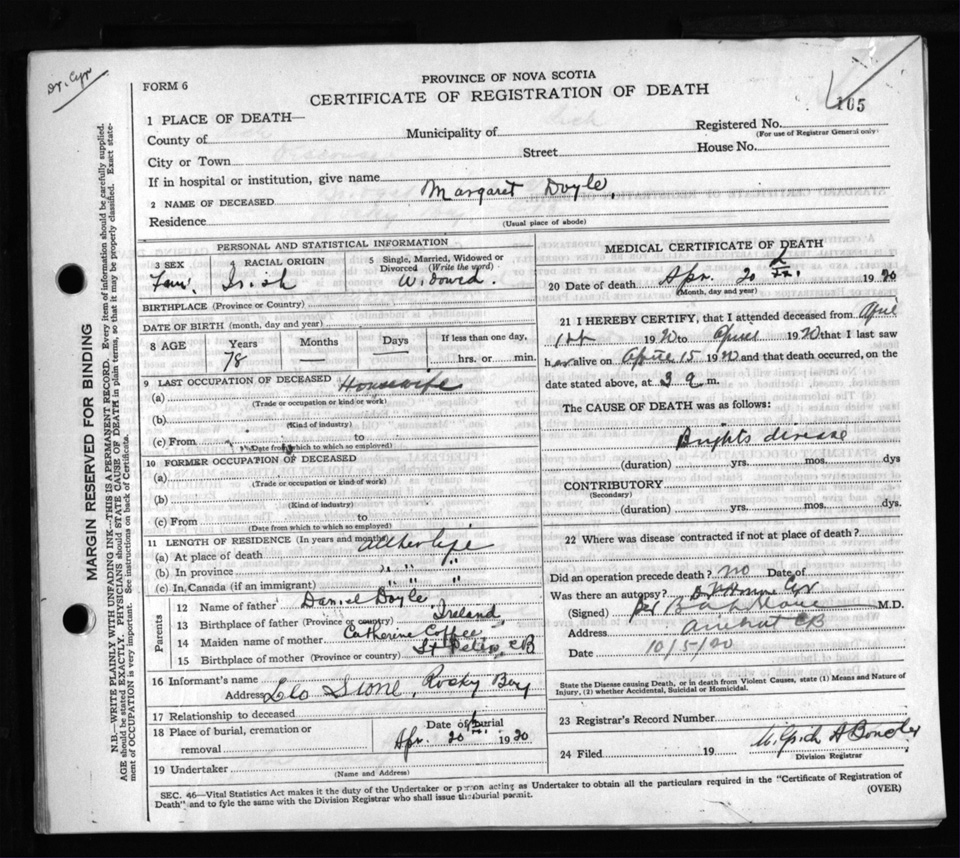 Dr. Cyr
FORM 6
PROVINCE OF NOVA SCOTIA
CERTIFICATE OF REGISTRATION OF DEATH
165
1 PLACE OF DEATH—
Registered No.
(For use of Registrar General only)
County of
Municipality of
House No.
City or Town
Street
If in hospital or institution, give name
2 NAME OF DECEASED Margaret Doyle
Residence
(Usual place of abode)
MARGIN RESERVED FOR BINDING
N.B.—WRITE PLAINLY WITH UNFADING INK—THIS IS A PERMANENT RECORD. Every item of information should be carefully supplied.
AGE should be stated EXACTLY. PHYSICIANS should STATE CAUSE OF DEATH in plain terms, so that it may be properly classified. Exact state-
ment of OCCUPATION is very important. See instructions on back of Certificate.
PERSONAL AND STATISTICAL INFORMATION
3 SEX
Fem.
4 RACIAL ORIGIN
Irish
5 Single, Married, Widowed or
Divorced (Write the word)
Widowed.
BIRTHPLACE (Province or Country)
DATE OF BIRTH (month, day and year)
8 AGE
Years
78
Months
—
Days
—
If less than one day,
hrs. or min.
9 LAST OCCUPATION OF DECEASED
(a) Housewife
(Trade or occupation or kind of work)
(b)
(Kind of industry)
(c) From to
(Date from which to which so employed)
10 FORMER OCCUPATION OF DECEASED
(a)
(Trade or occupation or kind of work)
(b)
(Kind of industry)
(c) From to
(Date from which to which so employed)
11 LENGTH OF RESIDENCE (In years and months)
(a) At place of death All her life
(b) In province " " "
(c) In Canada (if an immigrant) " " "
Parents
12 Name of father Daniel Doyle
13 Birthplace of father (Province or country) Ireland
14 Maiden name of mother Catherine Coffee
15 Birthplace of mother (Province or country) St Peters, CB
16 Informant's name
Address Leo Stone, Rocky Bay
17 Relationship to deceased
18 Place of burial, cremation or
removal
Date of burial
Apr. 20 1920
19 Undertaker
(Name and Address)
MEDICAL CERTIFICATE OF DEATH
20 Date of death Apr. 20 1920
(Month, day and year)
21 I HEREBY CERTIFY, that I attended deceased from April
1st 1920 to April 1920 that I last saw
her alive on April 15 1920 and that death occurred, on
date stated above, at 3 a m.
The CAUSE OF DEATH was as follows:
Brights disease
(duration) yrs. mos. dys
CONTRIBUTORY
(Secondary)
(duration) yrs. mos. dys.
22 Where was disease contracted if not at place of death?
Did an operation precede death? no Date of
Was there an autopsy?
(Signed) Per M.D.
Address Arichat CB
Date 10/5/20
State the Disease causing Death, or in death from Violent Causes, state (1) Means and Nature of
Injury, (2) whether Accidental, Suicidal or Homicidal.
23 Registrar's Record Number
24 Filed 19
Division Registrar
SEC. 46—Vital Statistics Act makes it the duty of the Undertaker or person acting as Undertaker to obtain all the particulars required in the "Certificate of Registration of
Death" and to fyle the same with the Division Registrar who shall issue the burial permit.
(OVER)